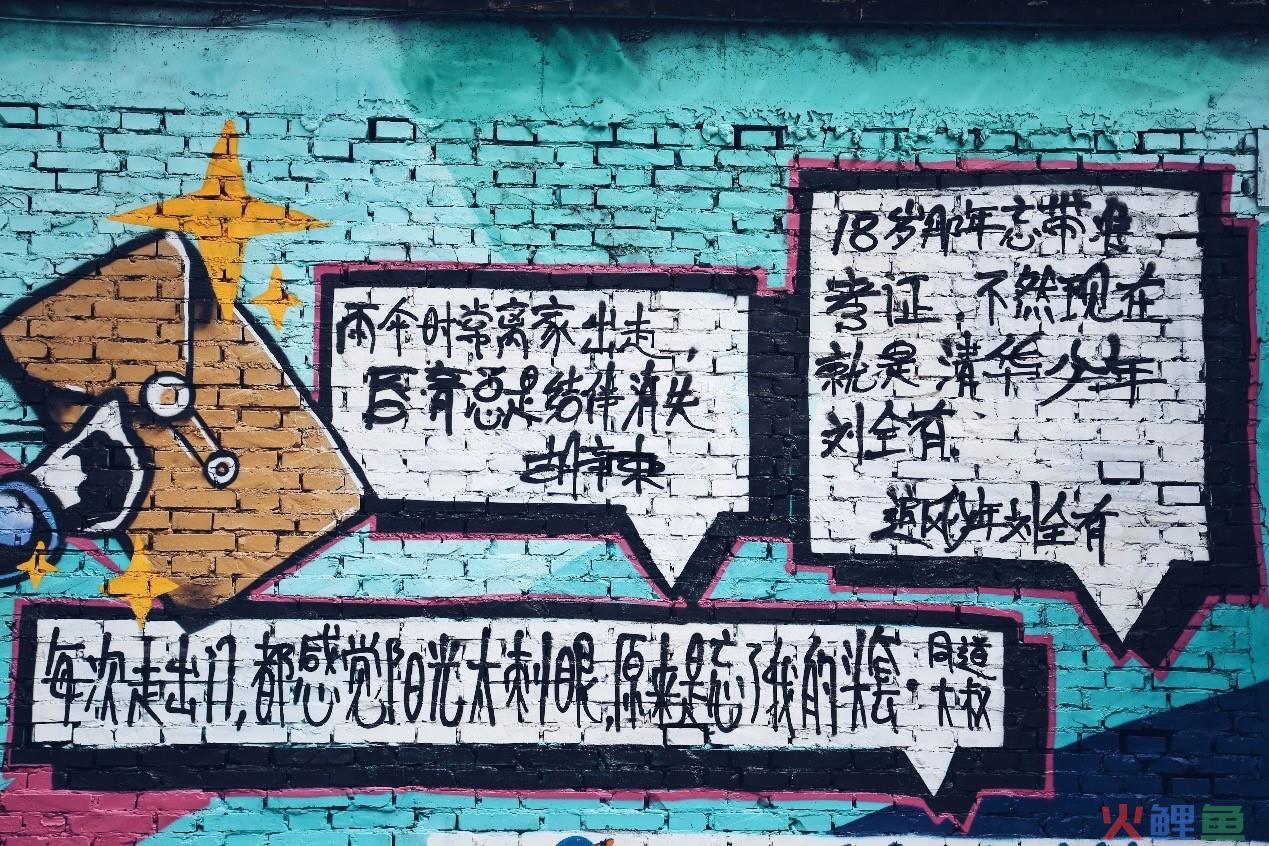 雨伞时常离家出走,
后背总是结伴消失
18岁那年忘带准
考证,不然现在
就是清华少年
刘全有.
追风少年刘全有
每次走出门,都感觉阳光太刺眼,原来是忘了我的头套.
同道
大叔
火鲤鱼